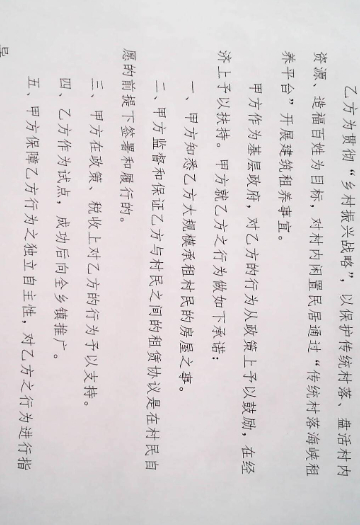 乙方为贯彻“乡村振兴战略”，以保护传统村落、盘活村内
资源、造福百姓为目标，对村内闲置民居通过“传统村落海峡租
养平台”开展建筑租养事宜。
甲方作为基层政府，对乙方的行为从政策上予以鼓励，在经
济上予以扶持。甲方就乙方之行为做如下承诺：
一、甲方知悉乙方大规模承租村民的房屋之事。
二、甲方监督和保证乙方与村民之间的租赁协议是在村民自
愿的前提下签署和履行的。
三、甲方在政策、税收上对乙方的行为予以支持。
四、乙方作为试点，成功后向全乡镇推广。
五、甲方保障乙方行为之独立自主性，对乙方之行为进行指